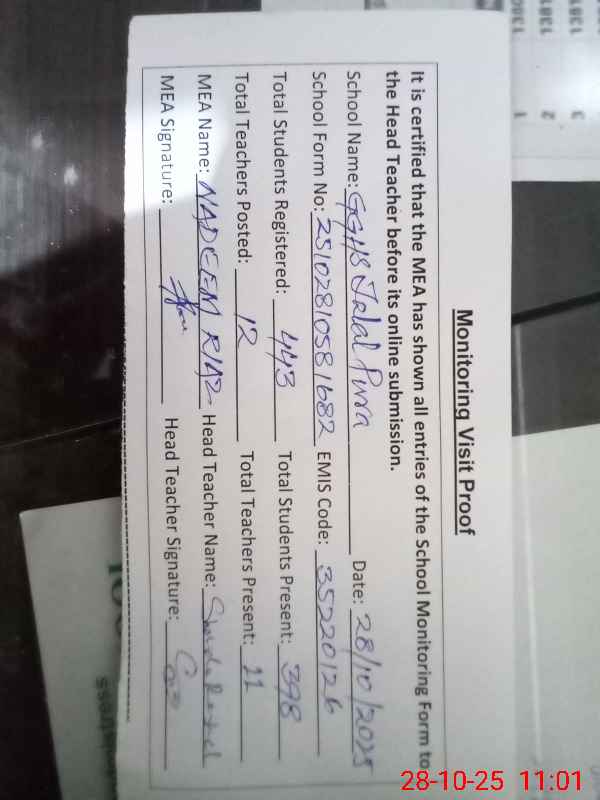 Monitoring Visit Proof
It is certified that the MEA has shown all entries of the School Monitoring Form to
the Head Teacher before its online submission.
School Name: GGHS Jalal Purra Date: 28/10/2025
School Form No: 2510281058 1682 EMIS Code: 35220126
Total Students Registered: 443 Total Students Present: 398
Total Teachers Posted: 12 Total Teachers Present: 11
MEA Name: NADEEM RIAZ Head Teacher Name:
MEA Signature: Head Teacher Signature:
28-10-25 11:01